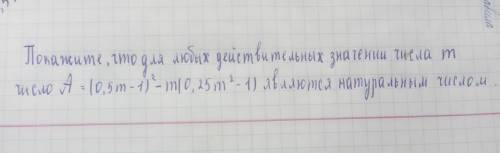 Покажите, что для любых действительных значении числа m
число A = (0,5m - 1)² - m(0,25m² - 1) являются натуральным числом.